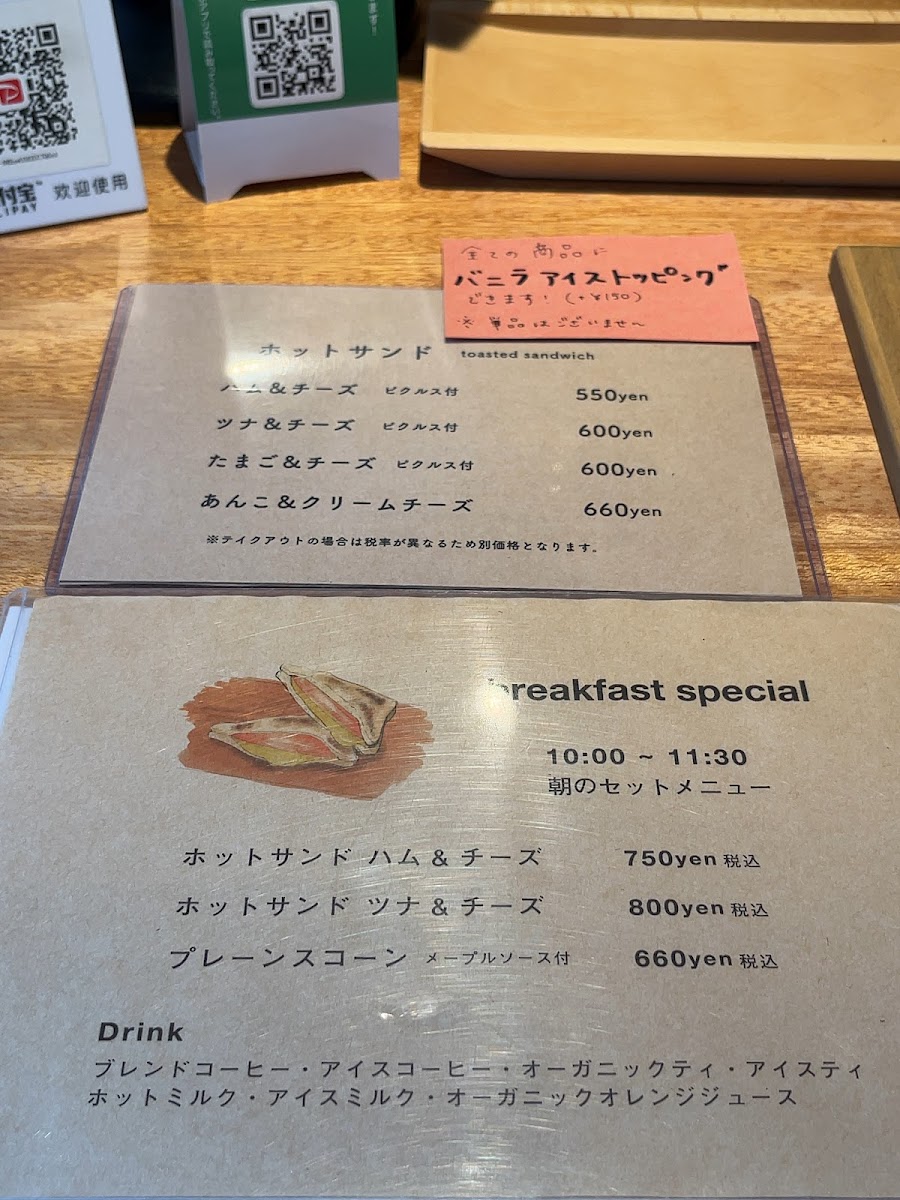 ます！
アプリで読み取ってください
付宝
IPAY
欢迎使用
全ての商品に
バニラアイストッピング
できます！(+¥150)
※単品はございません
ホットサンド toasted sandwich
ハム&チーズ ピクルス付 550yen
ツナ&チーズ ピクルス付 600yen
たまご&チーズ ピクルス付 600yen
あんこ&クリームチーズ 660yen
※テイクアウトの場合は税率が異なるため別価格となります。
breakfast special
10:00 ~ 11:30
朝のセットメニュー
ホットサンド ハム & チーズ 750yen 税込
ホットサンド ツナ & チーズ 800yen 税込
プレーンスコーン メープルソース付 660yen 税込
Drink
ブレンドコーヒー・アイスコーヒー・オーガニックティ・アイスティ
ホットミルク・アイスミルク・オーガニックオレンジジュース